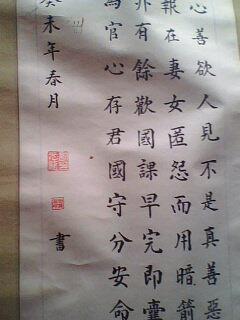 心善欲人見不是真善惡
報在妻女匿怨而用暗箭
亦有餘歡國課早完即囊
為官心存君國守分安命
癸未年春月
書